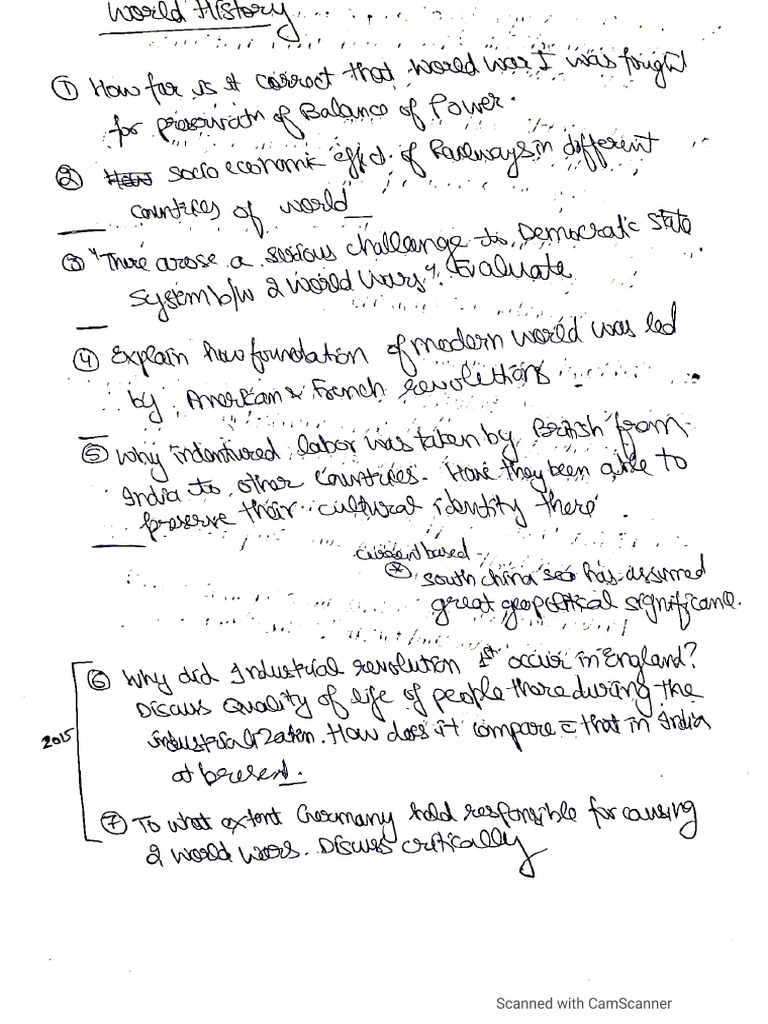 World History
① How far is it correct that world war I was fought
for preservation of Balance of Power.
② How socio economic effect of Railways in different
countries of world
③ "There arose a serious challange to Democratic state
system b/w 2 world wars". Evaluate
④ Explain how foundation of modern world was led
by American & French revolutions
⑤ Why indentured labor was taken by British from
India to other countries. Have they been able to
preserve their cultural identity there
current based
* South china sea has assumed
great geopolitical significance.
⑥ Why did Industrial revolution 1st occur in England?
Discuss Quality of life of people there during the
industrialization. How does it compare = that in India
at present.
2015
⑦ To what extent Germany held responsible for causing
2 world wars. Discuss critically
Scanned with CamScanner